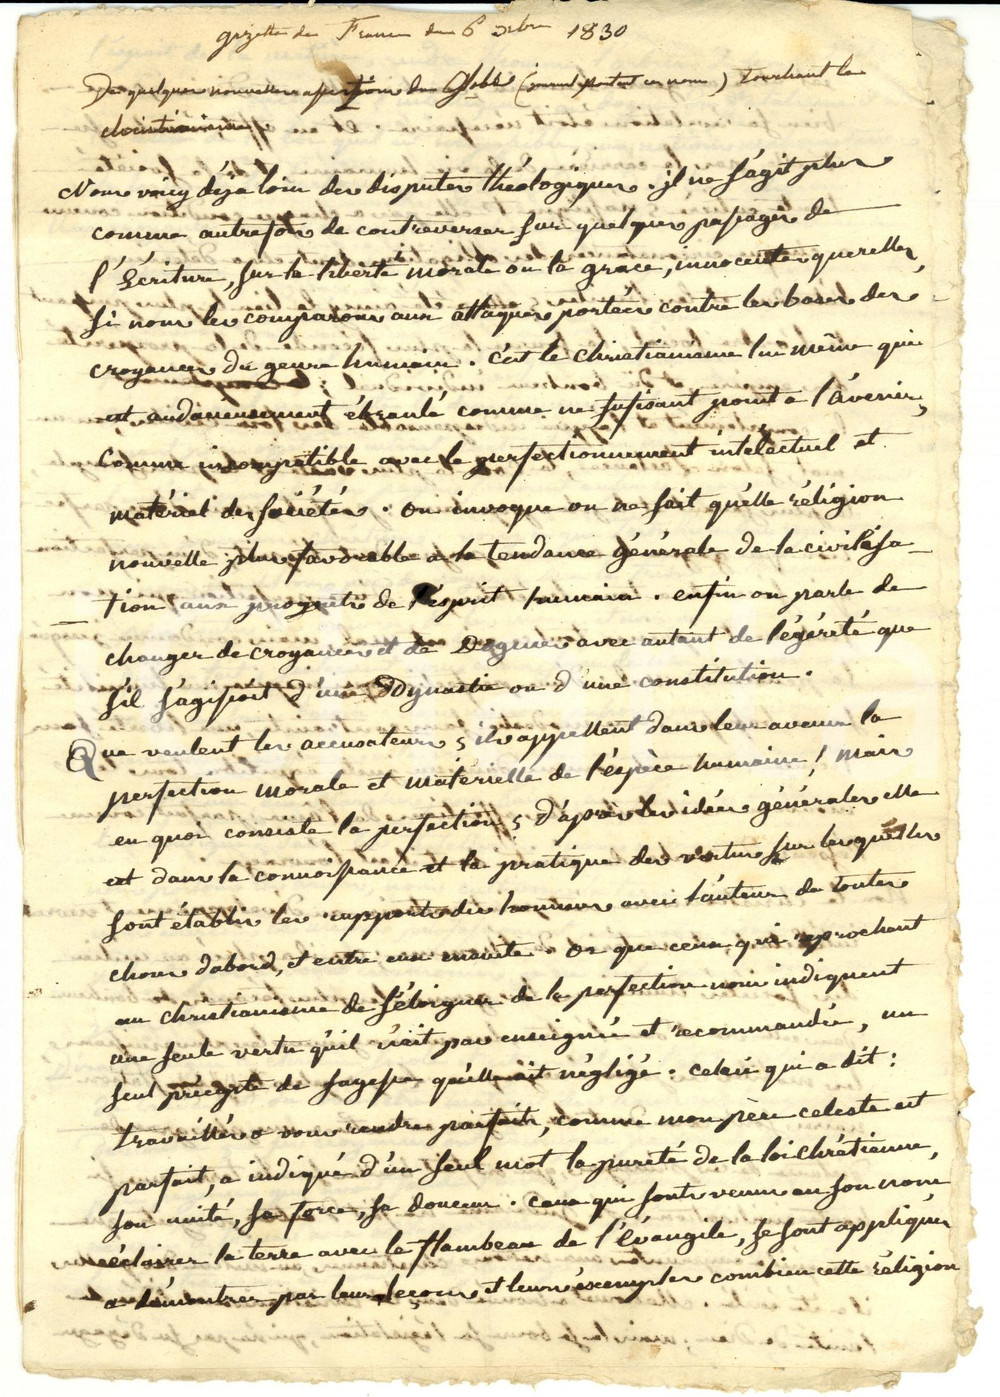 gazette de France du 6 1830
De quelques nouvelles assertions du Globe (journal portant ce nom) touchant le
christianisme
Nous voicy déja loin des disputes théologiques. il ne s'agit plus
comme autrefois de controverser sur quelques passages de
l'Écriture, sur la liberté morale ou la grace, innocentes querelles,
si nous les comparons aux attaques portées contre les bases des
croyances du genre humain. c'est le christianisme lui même qui
est audacieusement ébranlé comme ne sufisant point a l'avenir,
comme incompatible avec le perfectionnement intélectuel et
matériel des sociétés. on invoque on ne sait qu'elle réligion
nouvelle plus favorable a la tendance générale de la civilisa-
tion aux progrès de l'esprit humain. enfin on parle de
changer de croyances et de Dogmes avec autant de légéreté que
s'il s'agissoit d'une dynastie ou d'une constitution.
Que veulent les accusateurs; ils appellent dans leurs avenir la
perfection morale et matérielle de l'espèce humaine! mais
en quoi consiste la perfection; d'après les idées générales elle
est dans la connoissance et la pratique des vertus sur lesquelles
sont établis les rapports des hommes avec l'auteur de toutes
choses d'abord, et entre eux ensuite. or que ceux qui reprochent
au christianisme de s'éloigner de la perfection nous indiquent
une seule vertu qu'il n'ait pas enseignée et recommandée, un
seul précepte de sagesse qu'elle ait négligé. celui qui a dit:
travaillés a vous rendre parfaits, comme mon père celeste est
parfait, a indiqué d'un seul mot la pureté de la loi chrétienne,
son unité, sa force, sa douceur. ceux qui sont venus en son nom
éclairer la terre avec le flambeau de l'évangile, se sont appliqués
a démontrer par leurs leçons et leurs exemples combien cette réligion